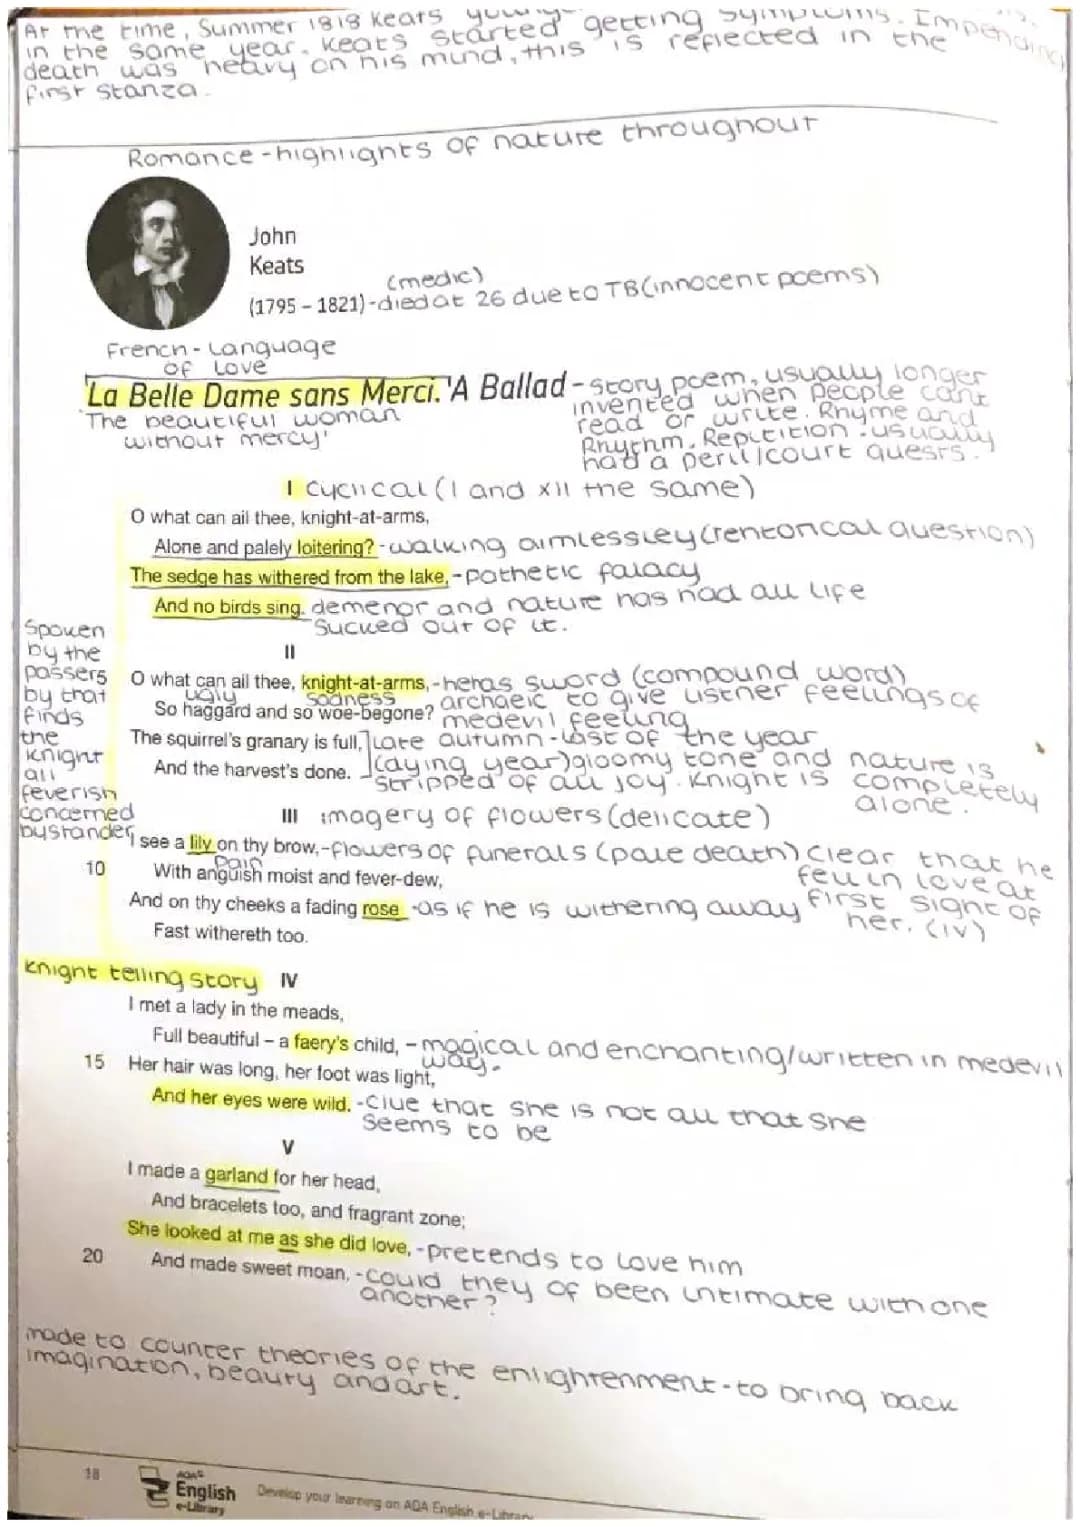 At the time, Summer 1818 Keats
in the same year. Keats started getting symptoms. Impending
death was heavy on his mind, this is reflected in the
first stanza.
Romance - highlights of nature throughout
John
Keats
(medic)
(1795 – 1821) - died at 26 due to TB (innocent poems)
French - Language
of Love
'La Belle Dame sans Merci.' A Ballad - story poem, usually longer
invented when people cant
read or write. Rhyme and
Rhythm. Repitition. usually
had a peril/court quests.
'The beautiful woman
without mercy'
I cyclical (I and XII the same)
O what can ail thee, knight-at-arms,
Alone and palely loitering? - walking aimlessley (rehtorical question)
The sedge has withered from the lake, - pathetic falacy
And no birds sing. demenor and nature has had all life
sucked out of it.
Spoken
by the
passers
by that
finds
the
knight
all
feverish
concerned
bystander
II
O what can ail thee, knight-at-arms, - heras sword (compound word)
ugly sadness archaeic to give listner feelings of
So haggard and so woe-begone? medevil feeling
The squirrel's granary is full, late autumn - last of the year
And the harvest's done. (dying year) gloomy tone and nature is
stripped of all joy. Knight is completely
alone.
III imagery of flowers (delicate)
I see a lily on thy brow, - flowers of funerals (pale death) clear that he
fell in love at
first sight of
her. (IV)
Pain
10 With anguish moist and fever-dew,
And on thy cheeks a fading rose - as if he is withering away
Fast withereth too.
Knight telling story IV
I met a lady in the meads,
Full beautiful – a faery's child, - magical and enchanting/written in medevil
way.
15 Her hair was long, her foot was light,
And her eyes were wild. - Clue that she is not all that she
seems to be
V
I made a garland for her head,
And bracelets too, and fragrant zone;
She looked at me as she did love, - pretends to love him
20 And made sweet moan, - could they of been intimate with one
another?
made to counter theories of the enlightenment - to bring back
imagination, beauty and art.
18
AQA
English
e-Library
Develop your learning on AQA English e-Library